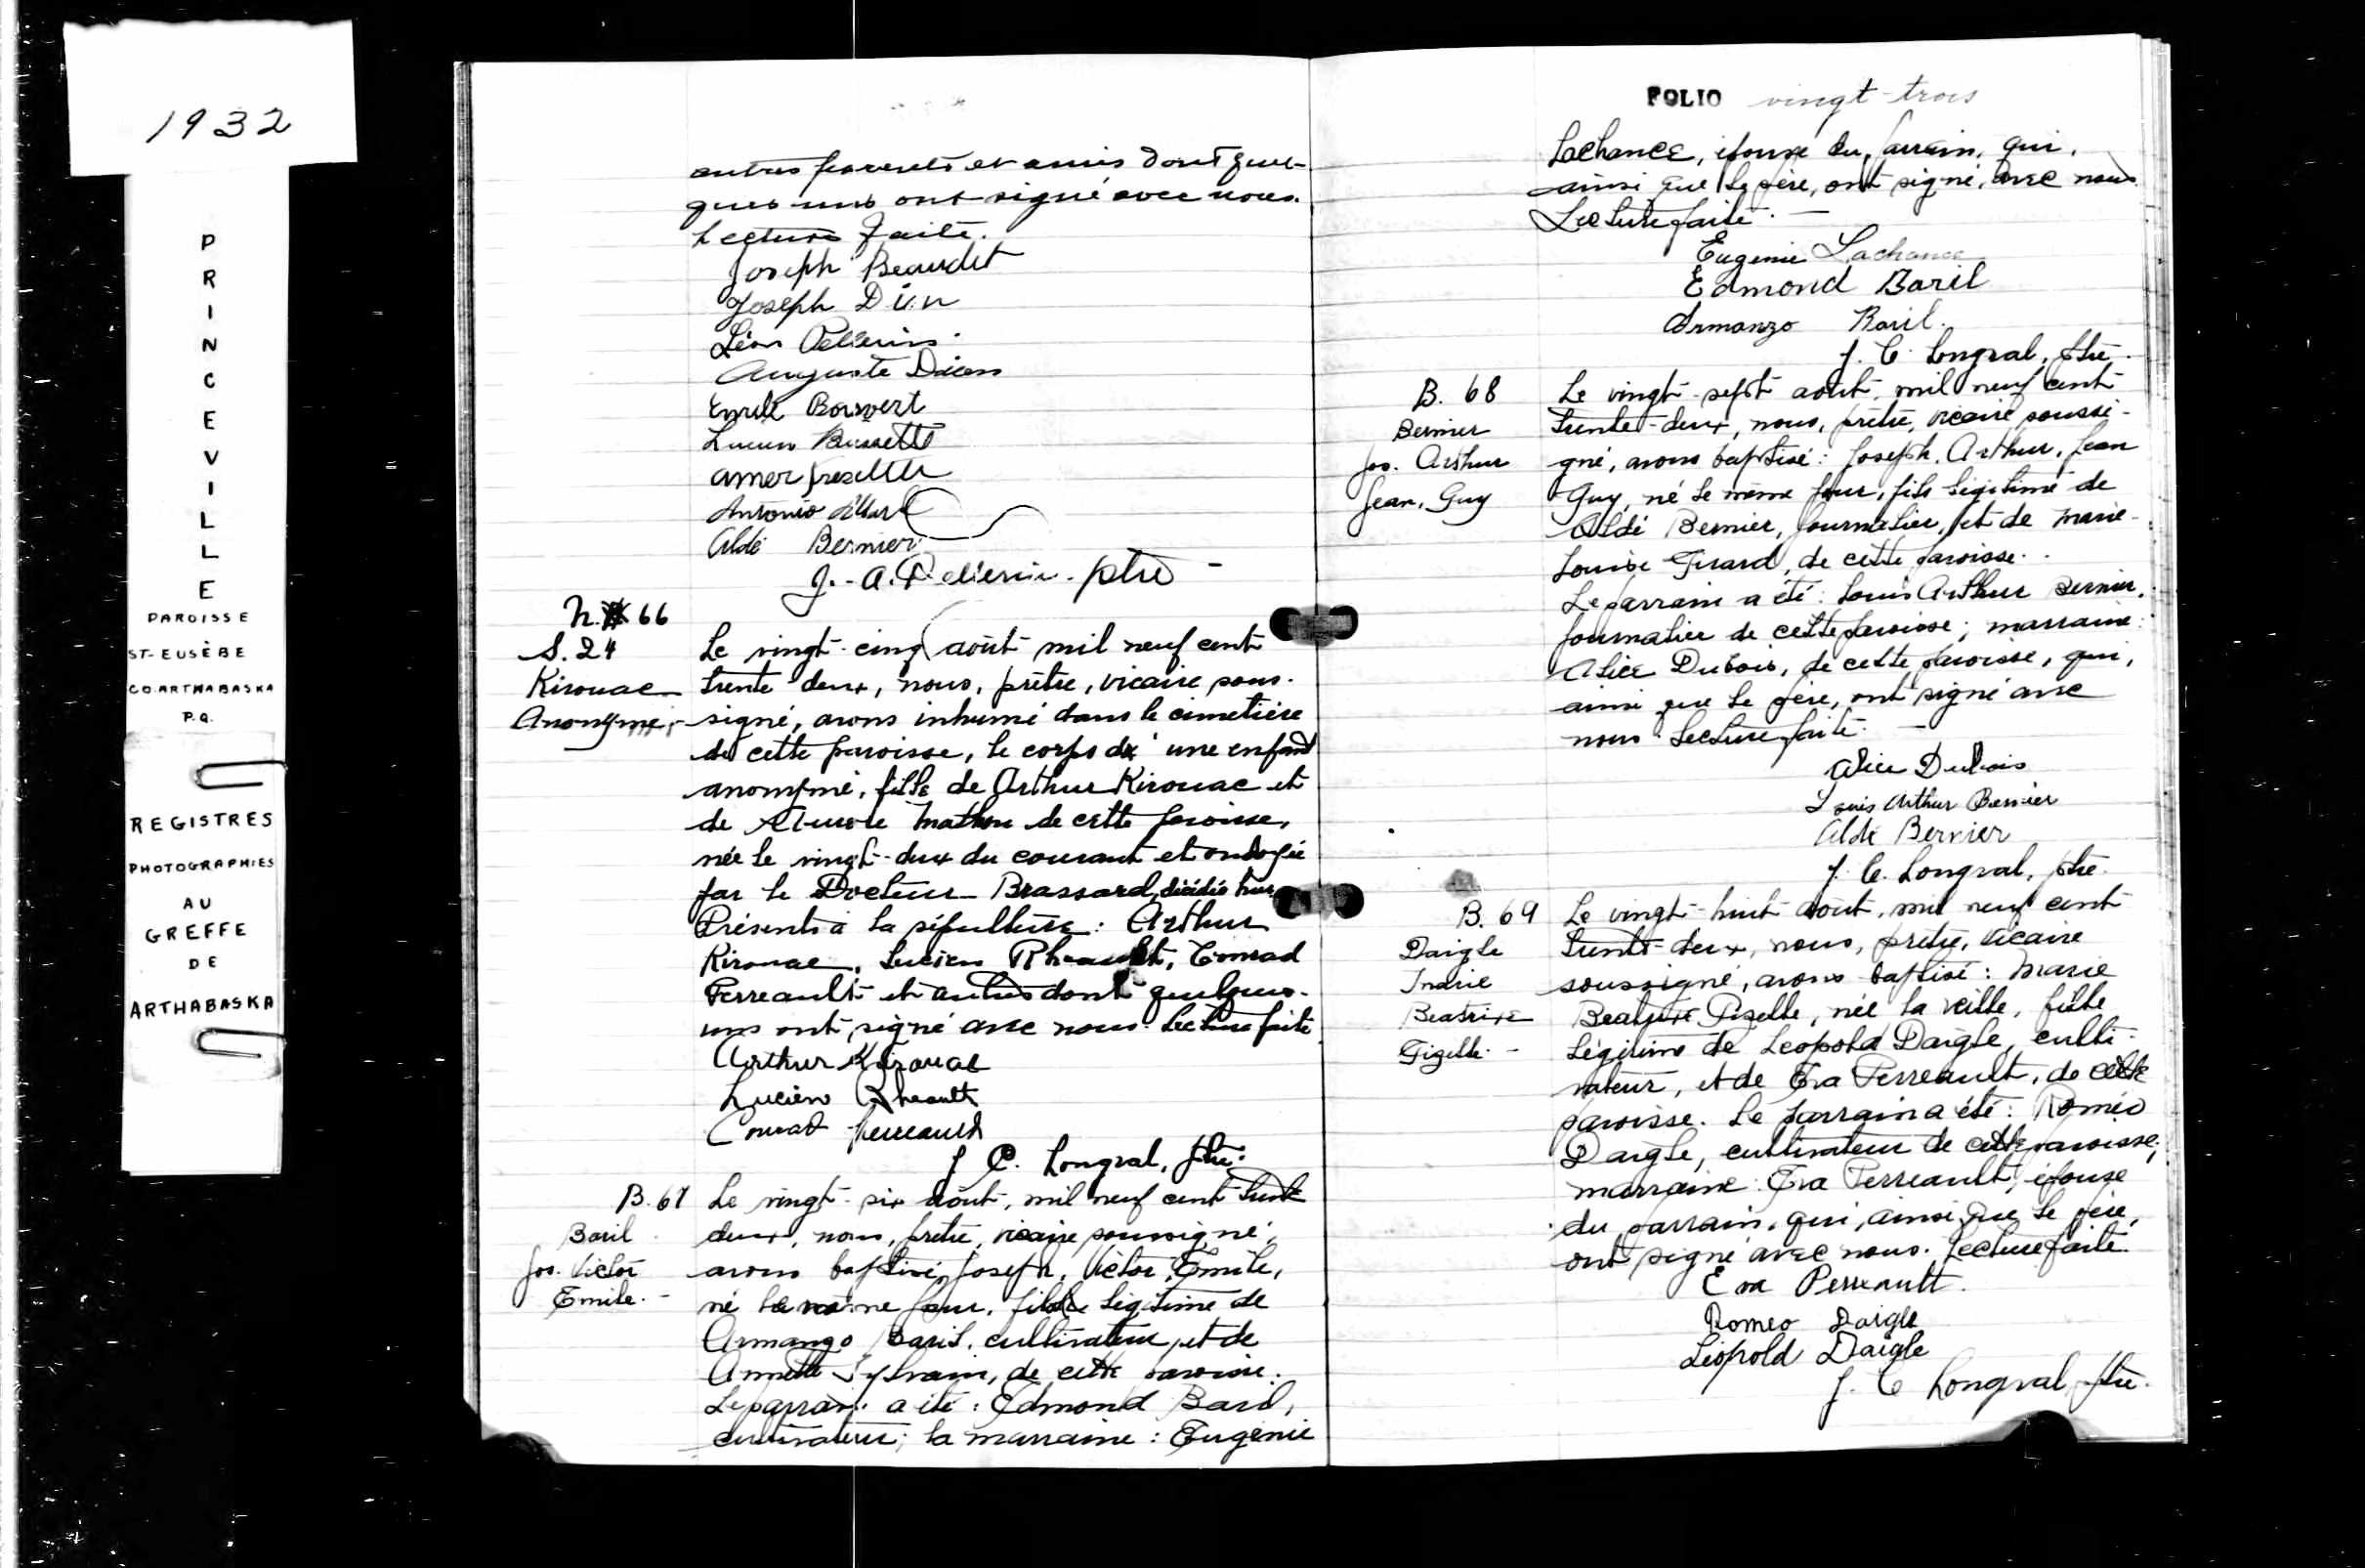 1932
P
R
I
N
C
E
V
I
L
L
E
PAROISSE
ST-EUSÈBE
CO. ARTHABASKA
P.Q.
REGISTRES
PHOTOGRAPHIES
AU
GREFFE
DE
ARTHABASKA
autres parents et amis dont quel-
ques uns ont signé avec nous.
Lecture faite.
Joseph Beaudet
Joseph Dion
Léon Pellerin
Auguste Dion
Emile Boisvert
Lucien
Antonio Allard
Aldé Bernier
J.-A. Pellerin. ptre -
N. 66
S. 24
Kirouac
Anonyme.
Le vingt-cinq août mil neuf cent
trente deux, nous, prêtre, vicaire sous-
signé, avons inhumé dans le cimetière
de cette paroisse, le corps d'une enfant
anonyme, fille de Arthur Kirouac et
de Aurore Mathieu de cette paroisse,
née le vingt-deux du courant et ondoyée
par le Docteur Brassard, décédée hier
Présents à la sépulture : Arthur
Kirouac, Lucien Rheault, Conrad
Perreault et autres dont quelques-
uns ont signé avec nous. Lecture faite
Arthur Kirouac
Lucien Rheault
Conrad Perreault
J. C. Longval, ptre.
B. 67
Baril
Jos. Victor
Emile. -
Le vingt-six août, mil neuf cent trente
deux, nous, prêtre, vicaire soussigné,
avons baptisé, Joseph, Victor, Emile,
né le même jour, fils légitime de
Armanzo Baril, cultivateur, et de
Annette Sylvain, de cette paroisse.
Le parrain a été : Edmond Baril,
cultivateur; la marraine : Eugénie
FOLIO vingt-trois
Lachance, épouse du parrain, qui,
ainsi que le père, ont signé, avec nous.
Lecture faite. -
Eugenie Lachance
Edmond Baril
Armanzo Baril.
J. C. Longval, ptre.
B. 68
Bernier
Jos. Arthur
Jean, Guy
Le vingt-sept août, mil neuf cent
trente-deux, nous, prêtre, vicaire soussi-
gné, avons baptisé : Joseph, Arthur, Jean
Guy, né le même jour, fils légitime de
Aldé Bernier, journalier, et de Marie-
Louise Girard, de cette paroisse.
Le parrain a été : Louis Arthur Bernier,
journalier de cette paroisse; marraine :
Alice Dubois, de cette paroisse, qui,
ainsi que le père, ont signé avec
nous. Lecture faite. -
Alice Dubois
Louis Arthur Bernier
Aldé Bernier
J. C. Longval, ptre.
B. 69
Daigle
Marie
Beatrixe
Gizelle. -
Le vingt-huit août, mil neuf cent
trente-deux, nous, prêtre, vicaire
soussigné, avons baptisé : Marie
Beatrixe Giselle, née la veille, fille
légitime de Leopold Daigle, culti-
vateur, et de Eva Perreault, de cette
paroisse. Le parrain a été : Roméo
Daigle, cultivateur de cette paroisse;
marraine : Eva Perreault, épouse
du parrain, qui, ainsi que le père,
ont signé avec nous. Lecture faite.
Eva Perreault.
Romeo Daigle
Léopold Daigle
J. C. Longval, ptre.